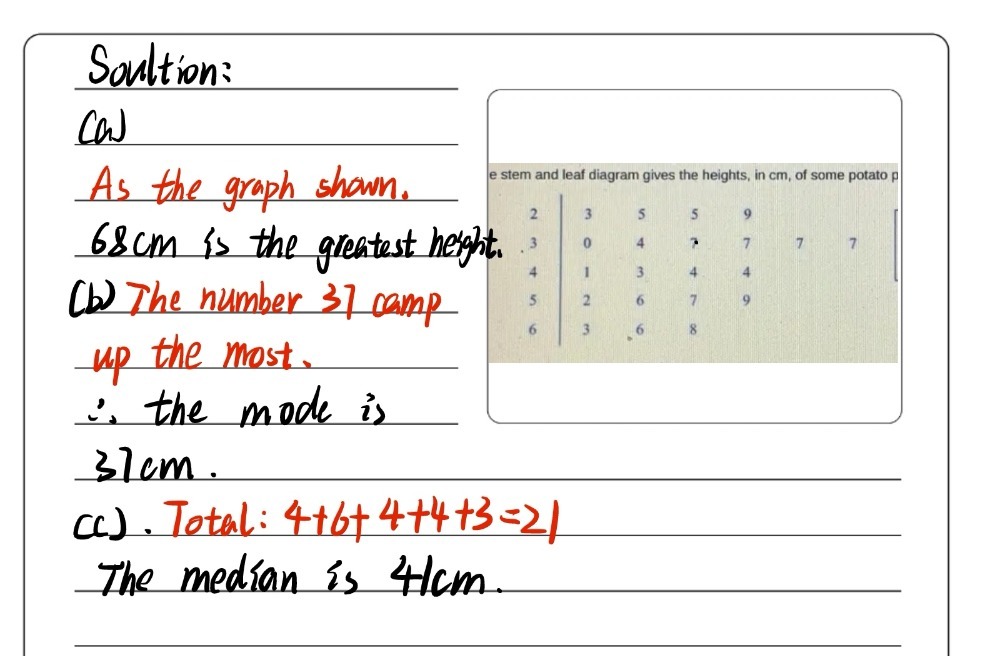 Soultion:
(a)
As the graph shown.
68cm is the greatest height.
(b) The number 37 camp
up the most.
∴ the mode is
37cm.
(c). Total: 4+6+4+4+3=21
The median is 41cm.
e stem and leaf diagram gives the heights, in cm, of some potato p
2 | 3 5 5 9
3 | 0 4 7 7 7 7
4 | 1 3 4 4
5 | 2 6 7 9
6 | 3 6 8